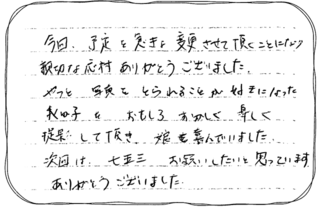 今回、予定を急きょ変更させて頂くことになり
親切な応対ありがとうございました。
やっと 写真を とられることが 好きになった
息子を おもしろ おかしく 楽しく
撮影して頂き 娘も喜んでいました。
次回は、七五三 お願いしたいと思っています
ありがとうございました。